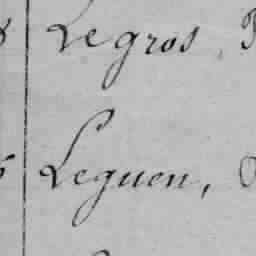 Legros,
Leguen,